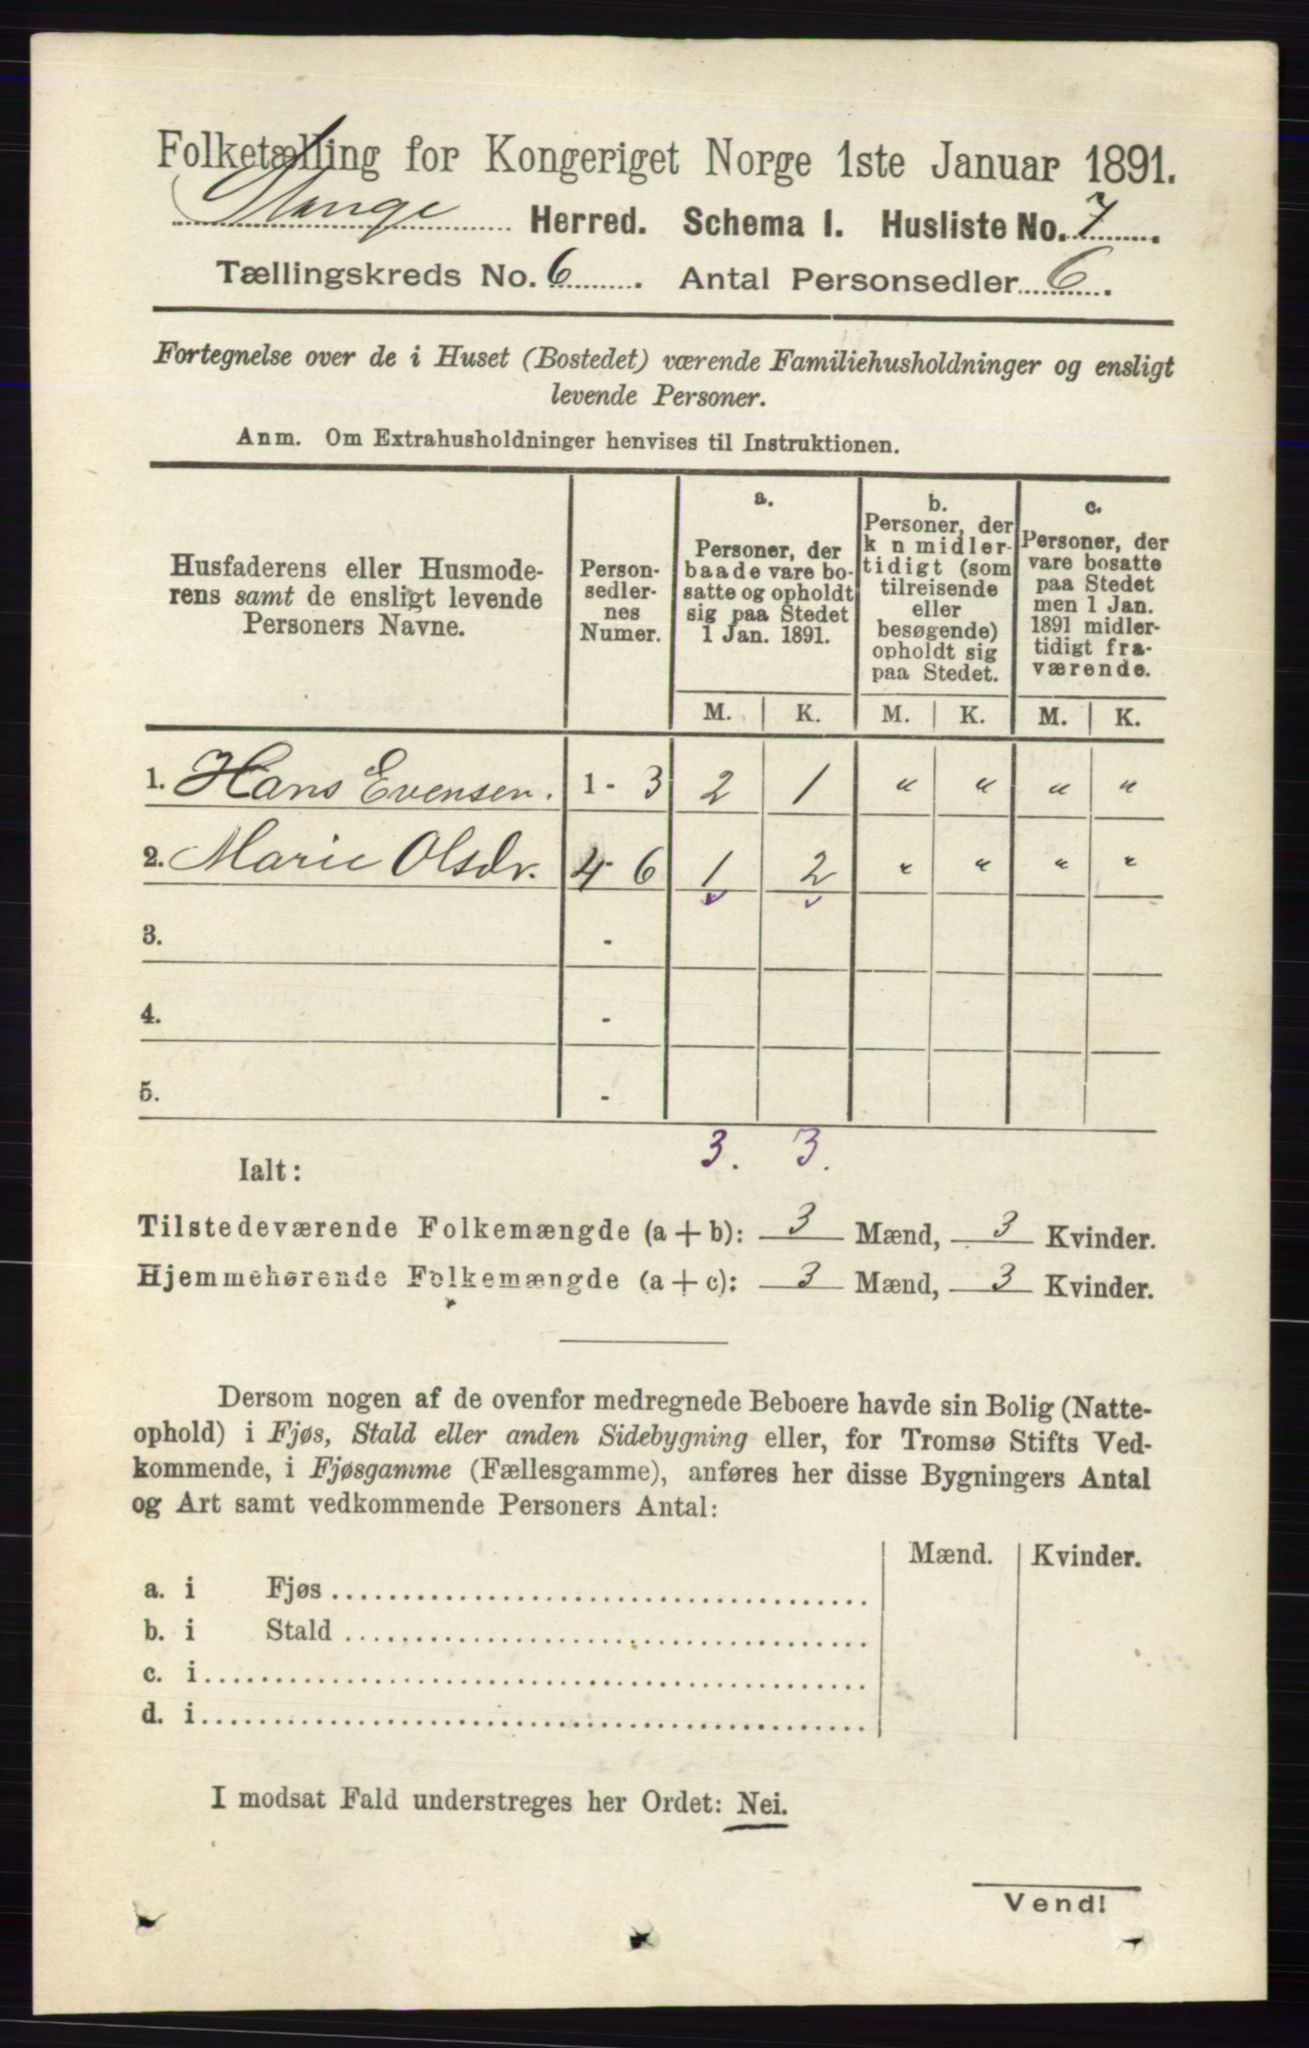 Folketælling for Kongeriget Norge 1ste Januar 1891.
Stange Herred. Schema I. Husliste No. 7.
Tællingskreds No. 6. Antal Personsedler 6.
Fortegnelse over de i Huset (Bostedet) værende Familiehusholdninger og ensligt
levende Personer.
Anm. Om Extrahusholdninger henvises til Instruktionen.
Husfaderens eller Husmode-
rens samt de ensligt levende
Personers Navne.
Person-
sedler-
nes
Numer.
a.
Personer, der
baade vare bo-
satte og opholdt
sig paa Stedet
1 Jan. 1891.
b.
Personer, der
k n midler-
tidigt (som
tilreisende
eller
besøgende)
opholdt sig
paa Stedet.
c.
Personer, der
vare bosatte
paa Stedet
men 1 Jan.
1891 midler-
tidigt fra-
værende.
M. K. M. K. M. K.
1. Hans Evensen. 1 - 3 2 1 " " " "
2. Marie Olsdr. 4 - 6 1 2 " " " "
3. -
4. -
5. -
3. 3.
Ialt:
Tilstedeværende Folkemængde (a + b): 3 Mænd, 3 Kvinder.
Hjemmehørende Folkemængde (a + c): 3 Mænd, 3 Kvinder.
Dersom nogen af de ovenfor medregnede Beboere havde sin Bolig (Natte-
ophold) i Fjøs, Stald eller anden Sidebygning eller, for Tromsø Stifts Ved-
kommende, i Fjøsgamme (Fællesgamme), anføres her disse Bygningers Antal
og Art samt vedkommende Personers Antal:
Mænd. Kvinder.
a. i Fjøs
b. i Stald
c. i
d. i
I modsat Fald understreges her Ordet: Nei.
Vend!